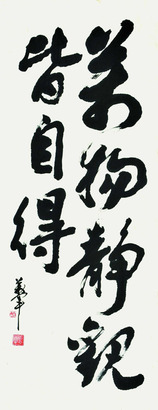 萬物靜觀
皆自得